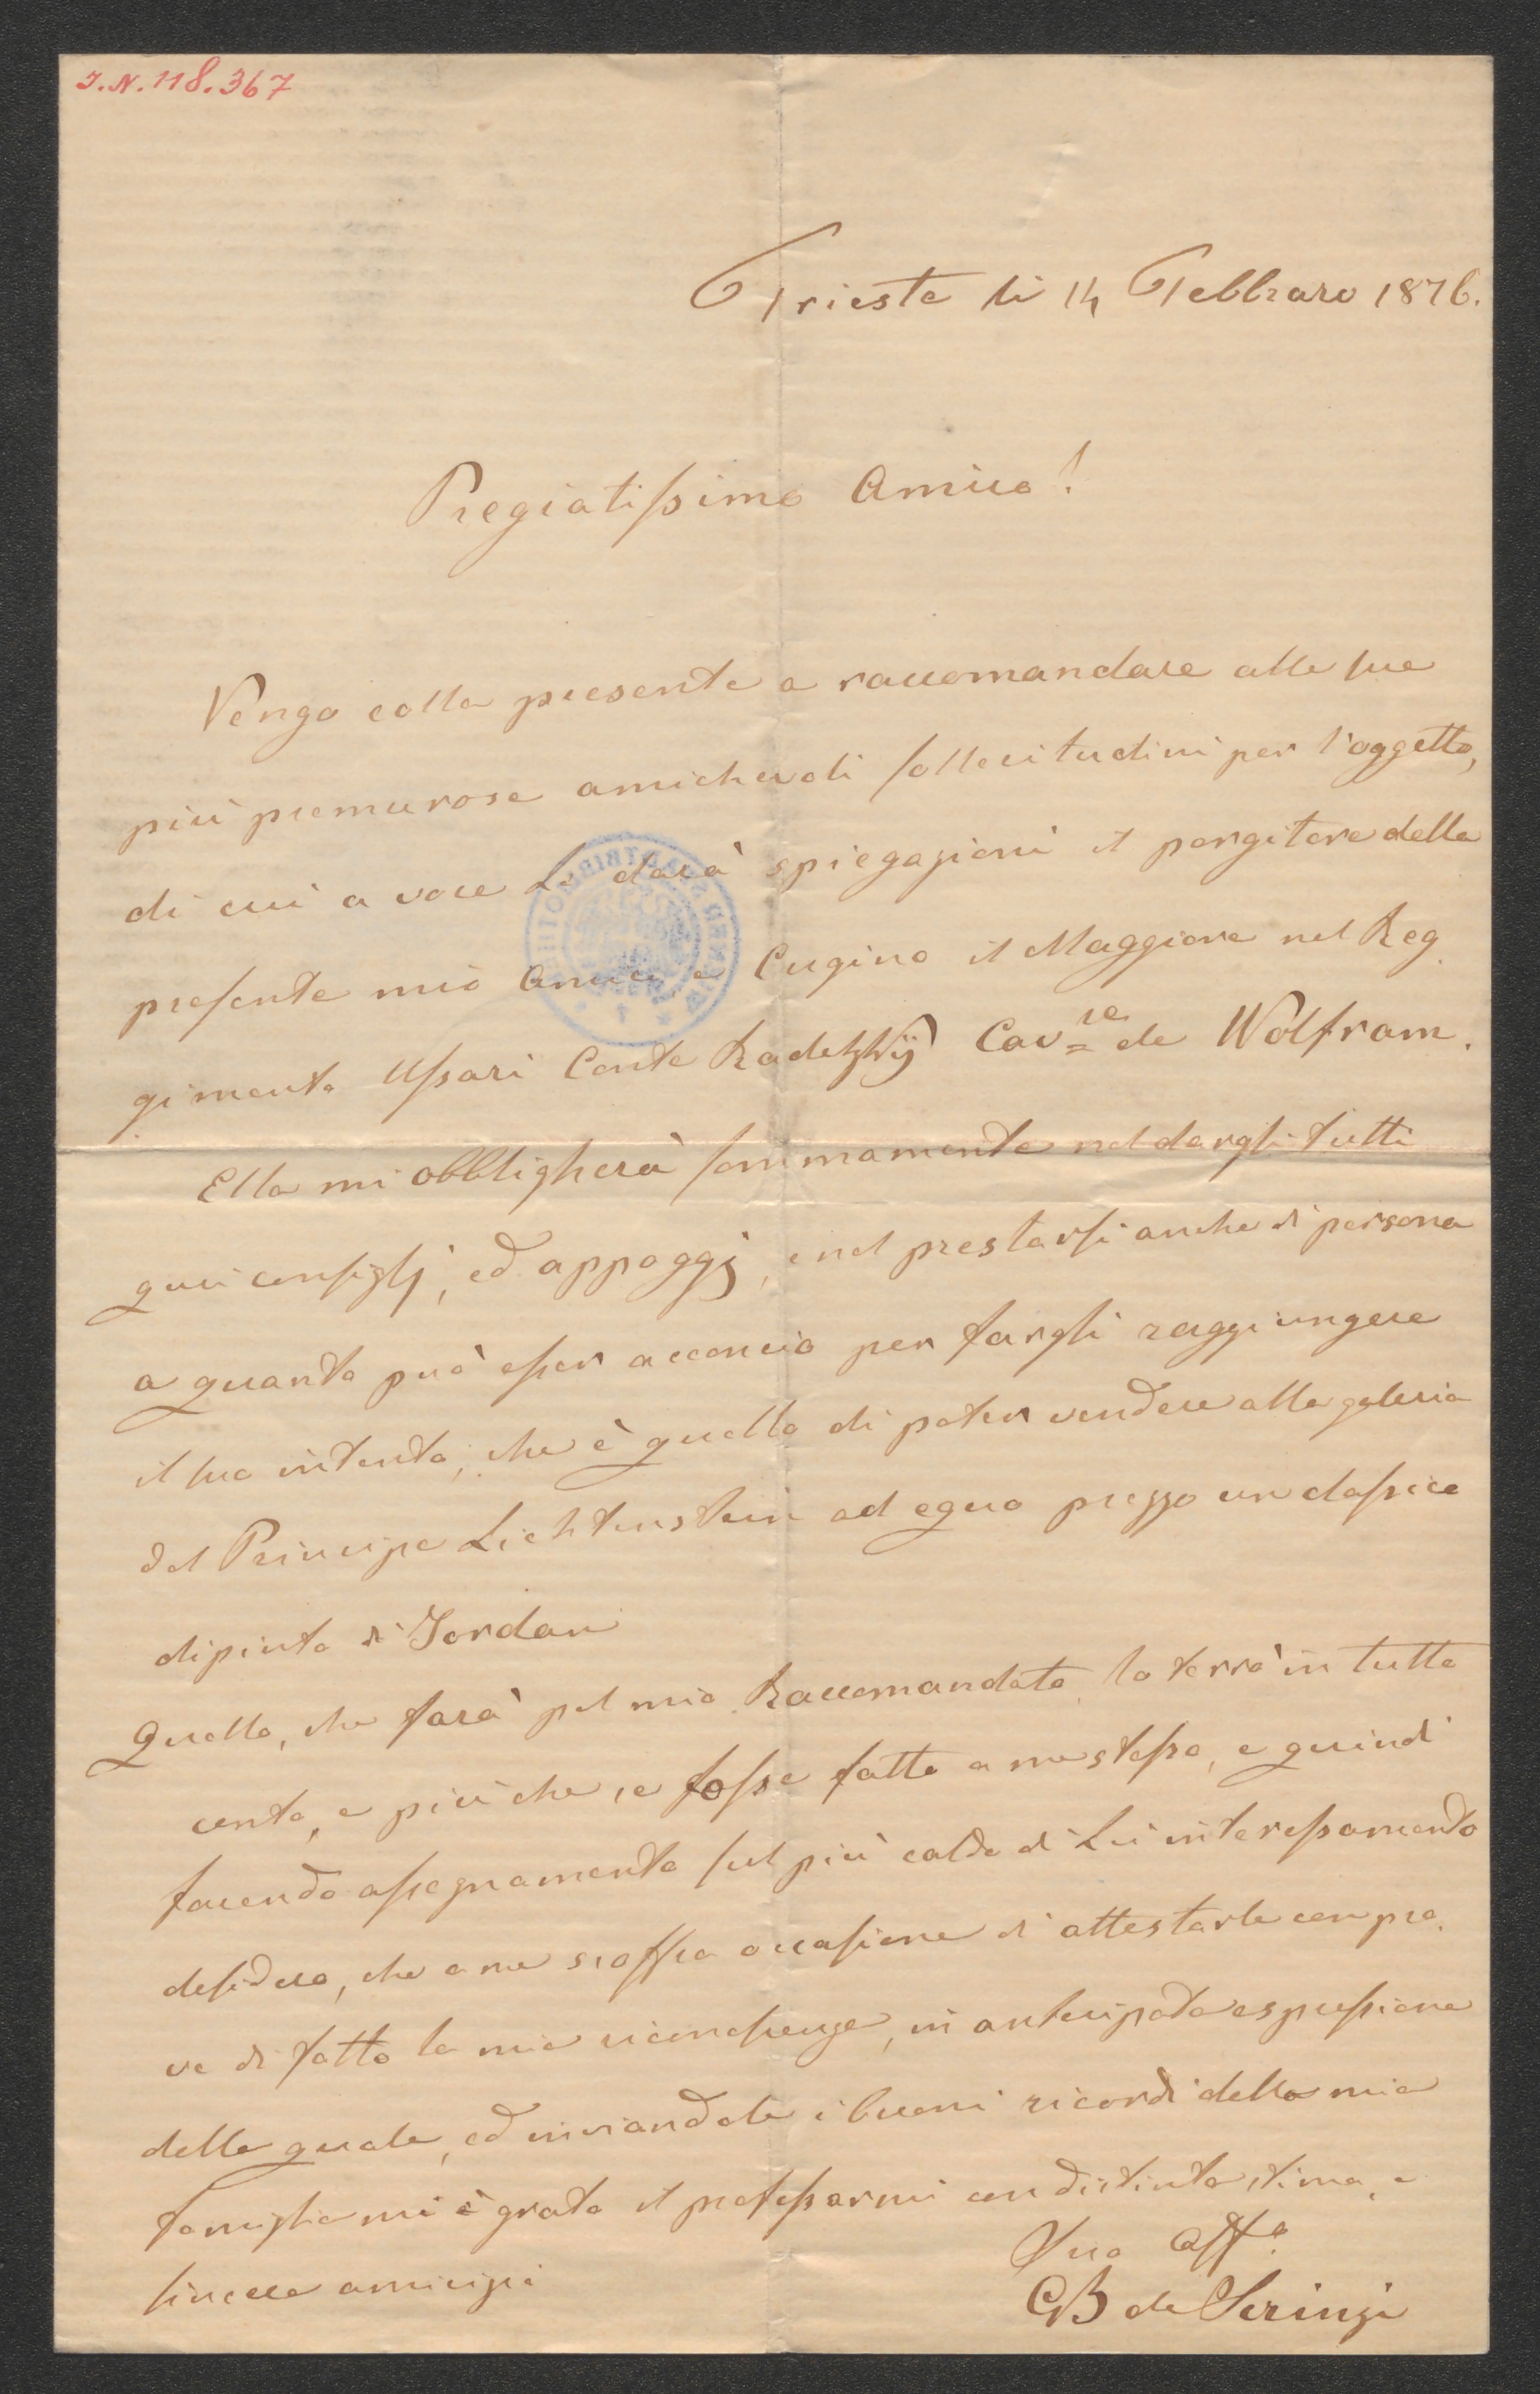 I.N. 118.367
Trieste li 14 Febbraro 1876.
Pregiatissimo Amico!
Vengo colla presente a raccomandare alle sue
più premurose amichevoli sollecitudini per l'oggetto,
di cui a voce Le darà spiegazioni il porgitore della
presente mio Amico e Cugino il Maggiore nel Reg
gimento Ussari Conte Radetzkÿ Cav.re de Wolfram.
Ella mi obbligherà sommamente nel dargli tutti
quei consiglj, ed appoggj, e nel prestarsi anche di persona
a quanto può esser acconcio per fargli raggiungere
il suo intento, che è quello di poter vendere alla galeria
del Principe Lichtenstein ad equo prezzo un classico
dipinto di Jordan
Quello, che farà pel mio Raccomandato lo terrò in tutto
conto, e più che se fosse fatto a me stesso, e quindi
facendo assegnamento sul più caldo di Lei interessamento
desidero, che a me s'offra occasione di attestarle con pro.
ve di fatto la mia riconoscenza, in anticipata espressione
della quale, ed inviandole i buoni ricordi della mia
famiglia mi è grato il professarmi con distinta stima, e
sincera amicizia
Suo Aff.o
GB de Scrinzi